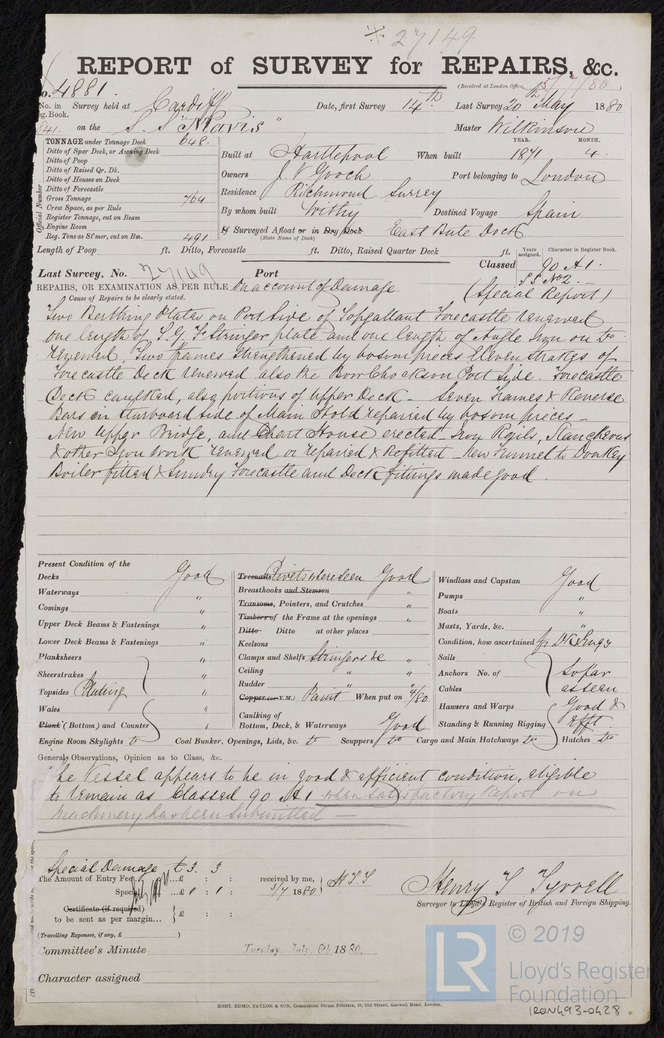 27149
REPORT of SURVEY for REPAIRS, &c.
(Received at London Office, 5/7/80
No. 4881.
No. in Reg. Book. Survey held at Cardiff Date, first Survey 14th Last Survey 20th May 1880
841. on the S.S "Mavis" Master Wilkinson
TONNAGE under Tonnage Deck 648
Ditto of Spar Deck, or Awning Deck
Ditto of Poop
Ditto of Raised Qr. Dk.
Ditto of Houses on Deck
Ditto of Forecastle
Gross Tonnage 764
Crew Space, as per Rule
Register Tonnage, cut on Beam
Engine Room
Reg. Tons as St'mer, cut on Bm. 491
Official Number
YEAR. MONTH.
Built at Hartlepool When built 1871 4
Owners J. V. Gooch Port belonging to London
Residence Richmond Surrey
By whom built Withy Destined Voyage Spain
If Surveyed Afloat or in Dry Dock East Bute Dock
(State Name of Dock)
Length of Poop ft. Ditto, Forecastle ft. Ditto, Raised Quarter Deck ft.
Years assigned. Character in Register Book.
Classed 90 A1.
S S No 2
Last Survey, No. 27149 Port
(Special Report)
REPAIRS, OR EXAMINATION AS PER RULE On account of Damage
Cause of Repairs to be clearly stated.
Two Berthing Plates on Port side of Topgallant Forecastle renewed
one length of Stringer plate and one length of Angle Iron on Do
renewed, Two frames strengthened by bosom pieces Eleven strakes of
Forecastle Deck renewed also the Door Chocks on Port side. Forecastle
Deck caulked, also portions of upper Deck. Seven Frames & Reverse
Bars on Starboard side of Main Hold repaired by bosom pieces
New Upper Bridge, and Chart House erected. Iron Rails, Stanchions
& other Iron work renewed or repaired & refitted. New Funnel to Donkey
Boiler fitted & Sundry Forecastle and Deck fittings made good.
Present Condition of the
Decks Good
Waterways "
Comings "
Upper Deck Beams & Fastenings "
Lower Deck Beams & Fastenings "
Planksheers "
Sheerstrakes "
Topsides Plating "
Wales "
Plank (Bottom) and Counter "
Engine Room Skylights Do
Treenails Rivits where seen Good
Breasthooks and Stemson "
Transoms, Pointers, and Crutches "
Timbers of the Frame at the openings "
Ditto Ditto at other places "
Keelsons "
Clamps and Shelfs Stringers &c "
Ceiling "
Rudder "
Copper (or Y.M.) Paint When put on 4/80
Caulking of Bottom, Deck, & Waterways Good
Coal Bunker, Openings, Lids, &c. Do Scuppers Do Cargo and Main Hatchways Do Hatches Do
Windlass and Capstan Good
Pumps "
Boats "
Masts, Yards, &c. "
Condition, how ascertained
Sails
Anchors No. of
Cables
So far as seen
Hawsers and Warps
Standing & Running Rigging
Good & Efft
General Observations, Opinion as to Class, &c.
The Vessel appears to be in good & efficient condition, eligible
to remain as Classed 90 A1 when satisfactory report on
machinery has been submitted
Special Damage £3. 3
The Amount of Entry Fee ...£ : :
Special ...£ 0 : 1 :
Certificate (if required) to be sent as per margin... £ : :
(Travelling Expenses, if any, £ )
received by me, H. T. T
3/7 1880
Henry T Tyrrell
Surveyor to Lloyd's Register of British and Foreign Shipping.
Committee's Minute Tuesday, July 6th 1880.
Character assigned
ROBT. EDMD. TAYLOR & SON, Commercial Steam Printers, 19, Old Street, Goswell Road, London.
LR
© 2019
Lloyd's Register
Foundation
IRON493-0428